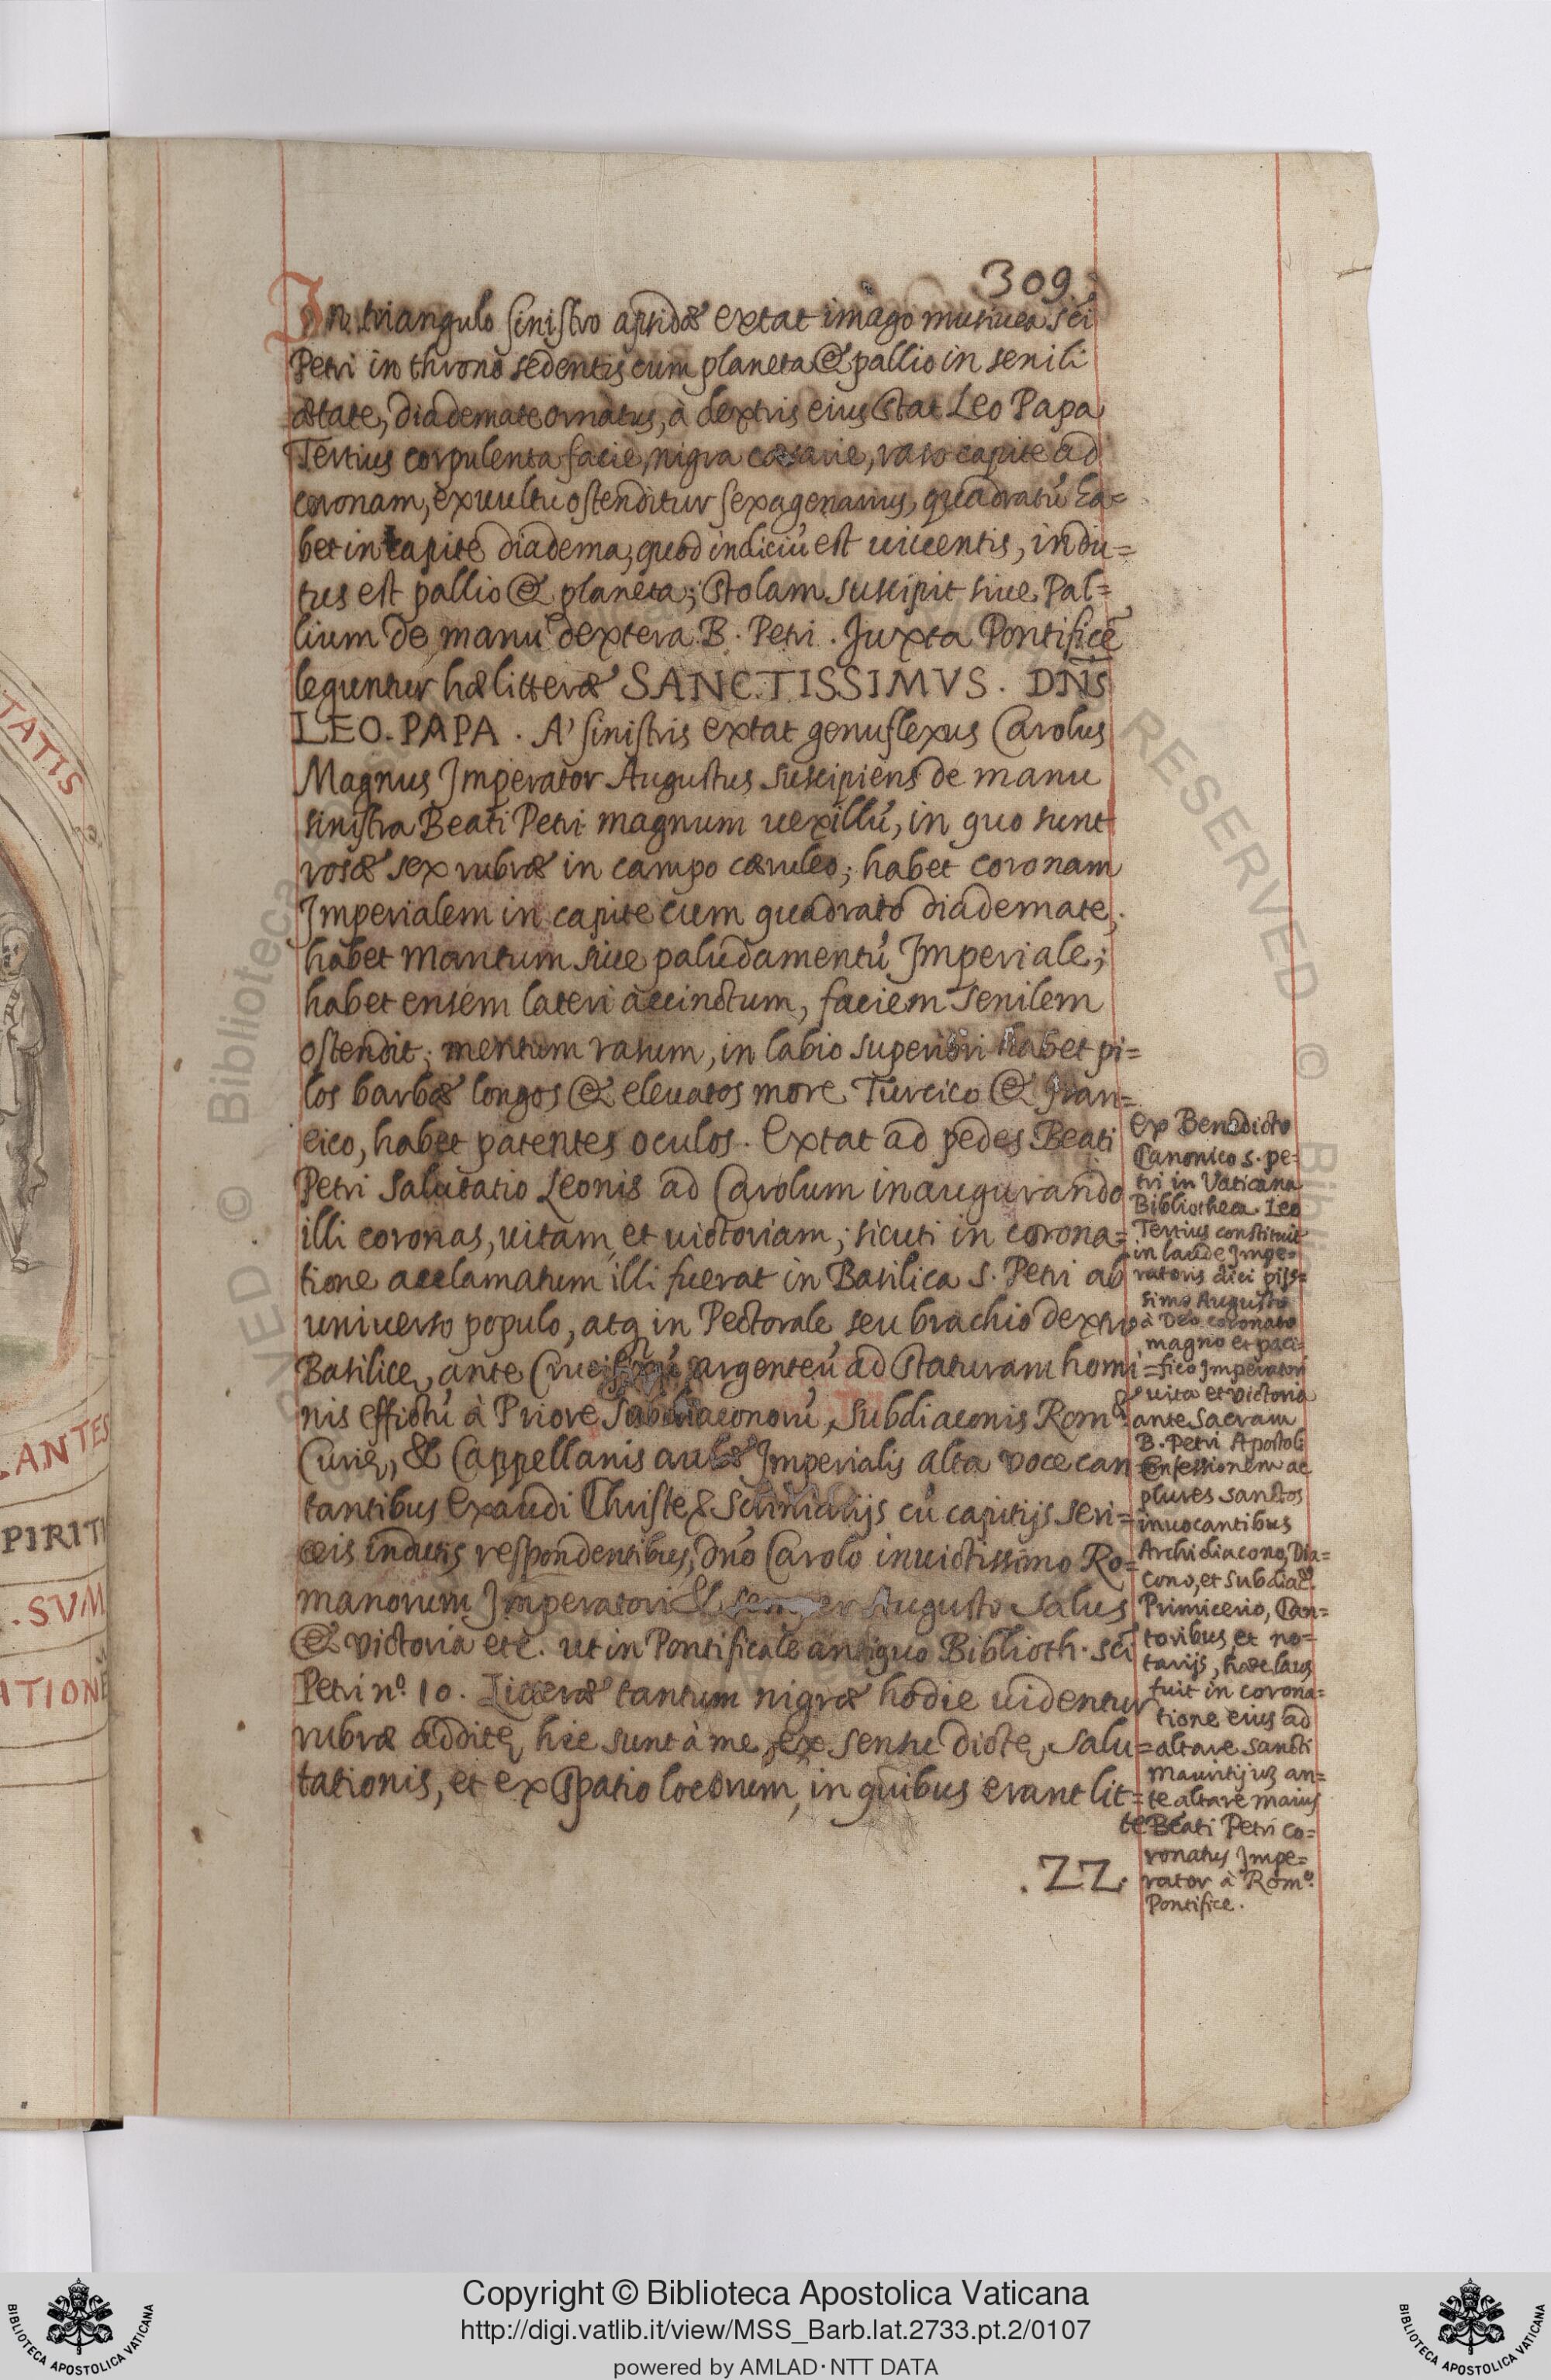 TATIS
LANTES
PIRITV
. SVM
ATIONĒ
309.
In triangulo sinistro apsidæ extat imago musiuea sci
Petri in throno sedentis cum planeta & pallio in senili
ætate, diademate ornatus, à dextris eius stat Leo Papa
Tertius corpulenta facie, nigra cæsarie, raso capite ad
coronam, ex uultu ostenditur sexagenarius, quadratũ ha=
bet in capite diadema, quod indiciũ est uiuentis, indu=
tus est pallio & planeta; stolam suscipit siue Pal=
lium de manu dextera B. Petri. Juxta Pontificẽ
leguntur hæ litteræ SANCTISSIMVS. DÑS
LEO. PAPA. A' sinistris extat genuflexus Carolus
Magnus Imperator Augustus suscipiens de manu
sinistra Beati Petri magnum uexillũ, in quo sunt
rosæ sex rubræ in campo cæruleo; habet coronam
Imperialem in capite cum quadrato diademate,
habet mantum siue paludamentũ Imperiale;
habet ensem lateri accinctum, faciem senilem
ostendit; mentum rasum, in labio superiori habet pi=
los barbæ longos & eleuatos more Turcico & Fran=
cico, habet patentes oculos. Extat ad pedes Beati
Petri salutatio Leonis ad Carolum inaugurando
illi coronas, uitam et uictoriam; sicuti in corona=
tione acclamatum illi fuerat in Basilica S. Petri ab
uniuerso populo, atq in Pectorale seu brachio dextro
Basilicę, ante Crucifixũ argenteũ ad staturam homi=
nis effictũ à Priore Subdiaconorũ, Subdiaconis Romę.
Curię, & Cappellanis aulæ Imperialis alta voce can
tantibus Exaudi Christe & Scriniarijs cũ capitijs seri=
ceis indutis respondentibus, dño Carolo inuictissimo Ro=
manorum Imperatori & semper Augusto Salus
& victoria etc. ut in Pontificale antiquo Biblioth. sci
Petri nº. 10. Litteræ tantum nigræ hodie uidentur
rubræ additę hic sunt à me, ex sensu dictę salu=
tationis, et ex spatio locorum, in quibus erant lit=
te
. ZZ.
Ex Benedicto
Canonico S. Pe=
tri in Vaticana
Bibliotheca Leo
Tertius constituit
in laude Impe=
ratoris dici piis=
simo Augusto
à Deo coronato
magno et paci=
fico Imperatori
uita et victoria
ante Sacram
B. Petri Apostoli
Confessionem ac
plures sanctos
inuocantibus
Archidiacono, Dia=
cono, et Subdiac.
Primicerio, Can=
toribus et no=
tarijs, hæc laus
fuit in corona=
tione eius ad
altare sancti
Mauritij uz an=
te altare maius
Beati Petri co=
ronatus Impe=
rator à Romº.
Pontifice.
Copyright © Biblioteca Apostolica Vaticana
http://digi.vatlib.it/view/MSS_Barb.lat.2733.pt.2/0107
powered by AMLAD·NTT DATA
BIBLIOTECA APOSTOLICA VATICANA
BIBLIOTECA APOSTOLICA VATICANA